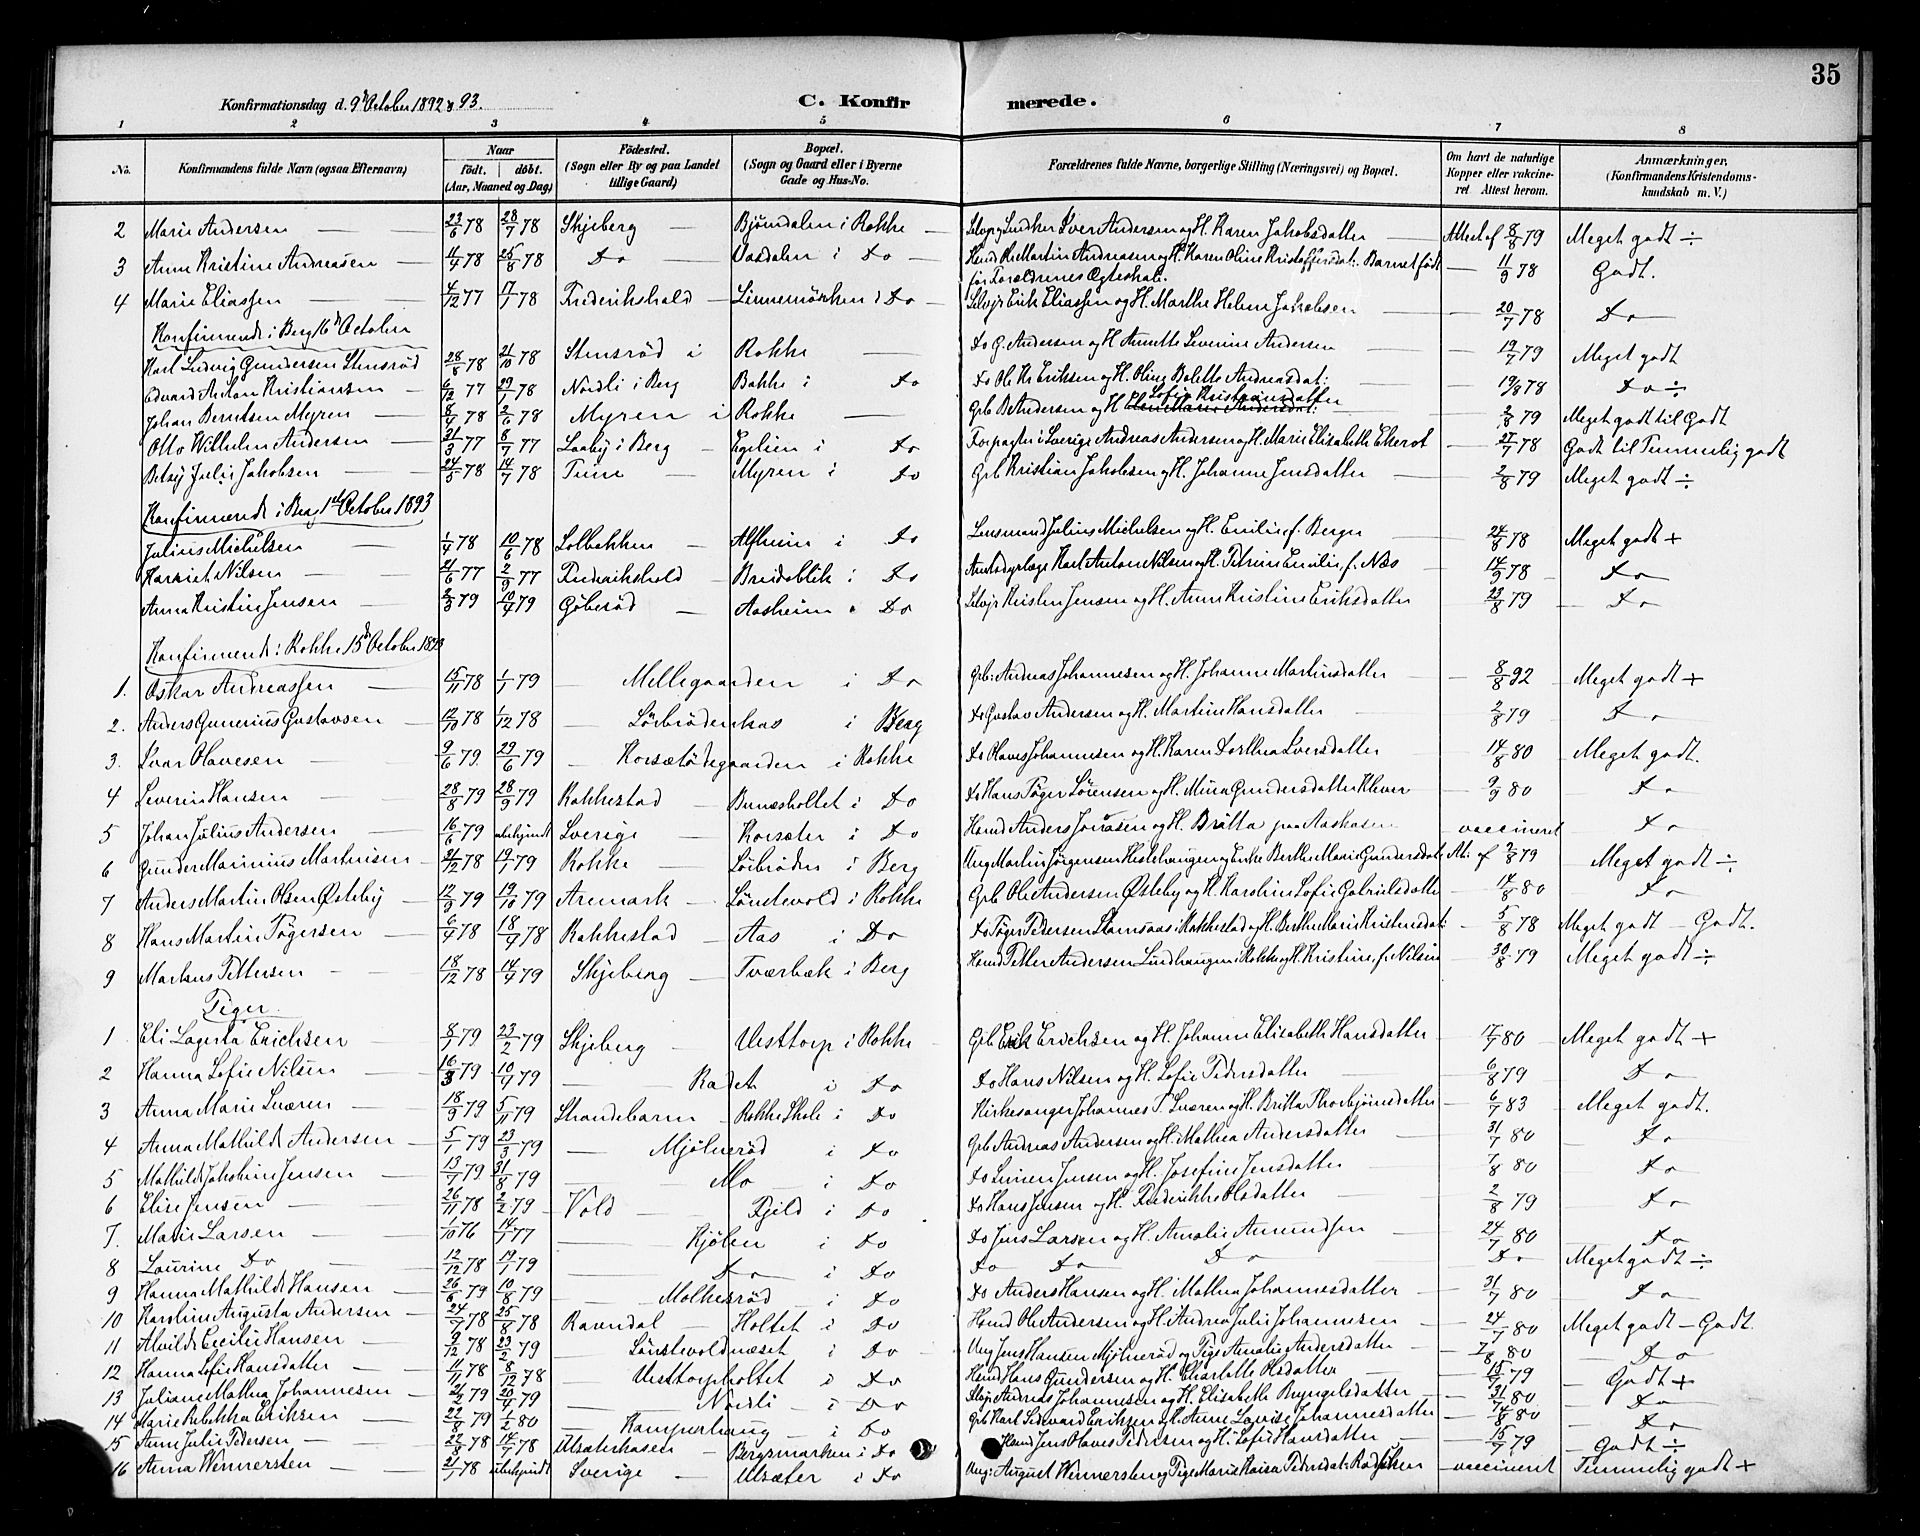 35
Konfirmationsdag d. 9d October 1892 & 93. C. Konfirmerede.
1 2 3 4 5 6 7 8
No. Konfirmandens fulde Navn (ogsaa Efternavn) Naar født. døbt. (Aar, Maaned og Dag) Födested. (Sogn eller By og paa Landet tillige Gaard) Bopæl. (Sogn og Gaard eller i Byerne Gade og Hus-No. Forældrenes fulde Navne, borgerlige Stilling (Næringsvei) og Bopæl. Om havt de naturlige Kopper eller vakcineret Attest herom. Anmærkninger, (Konfirmandens Kristendomskundskab m. V.)
2 Marie Andersen — 23/6 78 28/7 78 Skjeberg — Bjørndalen i Rokke — Iver Andersen og H. Karen Jakobsdatter — Attest af 8/8 79 Meget godt ÷
3 Anne Kristine Andreasen — 11/4 78 25/8 78 Do Vasdalen i Do — Martin Andreasen og H. Karen Oline Kristoffersdat: Barnet født før Forældrenes Ægteskab. — 11/9 78 Godt.
4 Marie Eliassen — 4/12 77 17/1 78 Frederikshald — Linnemörken i Do — Selvejr Erik Eliassen og H. Marthe Helene Jakobsen — 20/7 78 Do
Konfirmerede i Berg 16d October
Karl Ludvig Gundersen Stensrød 28/8 78 21/10 78 Stensrød i Rokke — Do G. Andersen og H Annette Severine Andersen — 19/7 79 Meget godt
Edvard Anton Kristiansen — 6/12 77 29/1 78 Nordli i Berg Bakke i Do Do Ole Kr Eriksen og H. Oline Bolette Andreasdat: — 19/8 78 Do ÷
Johan Berntsen Myren — 8/4 78 2/6 78 Myren i Rokke — Grb B Andersen og H Sofie Kristiansdatter — 2/8 79 Meget godt til Godt
Otto Wilhelm Andersen — 31/3 77 8/7 77 Laaby i Berg Egelien i Do Forpagter i Sverige Andreas Andersen og H. Marie Elisabeth Ekerot — 27/7 78 Godt til Temmelig godt
Betsy Julie Jakobsen — 24/5 78 14/7 78 Tune — Myren i Do Grb Kristian Jakobsen og H. Johanne Jensdatter — 2/8 79 Meget godt ÷
Konfirmerede i Berg 1d October 1893
Julius Michelsen — 1/4 78 10/6 78 Solbakken — Alfheim i Do Lensmand Julius Michelsen og H. Emilie f. Berger — 24/8 78 Meget godt +
Harriet Nilsen — 21/6 77 2/9 77 Frederikshald — Breidablik i Do Amtsdyrlæge Karl Anton Nilsen og H. Petrine Emilie f. Næs — 14/9 78 — Do
Anna Kristine Jensen — 2/3 79 10/4 79 Göberød — Aasheim i Do Selvejr Kristen Jensen og H. Anne Kristine Eriksdatter 23/8 79 — Do
Konfirmerede i Rokke 15d October 1893
1. Oskar Andreassen — 15/11 78 1/1 79 — Mellegaarden i Do Grb: Andreas Johannesen og H. Johanne Martinsdatter — 8/8 92 Meget godt +
2. Anders Gunerius Gustavsen — 12/10 78 1/12 78 — Sörbrødenkas i Berg Do Gustav Andersen og H. Martine Hansdatter — 2/8 79 — Do
3. Ivar Olavesen — 9/6 79 29/6 79 — Korsetødegaarden i Rokke Do Olaves Johannesen og H. Karen Dorthea Iversdatter — 14/8 80 Meget godt.
4 Severin Hansen — 28/8 79 28/9 79 Rakkestad — Bunesholtet i Do Do Hans Töger Sörensen og H. Mina Gundersdatter Klever — 9/9 80 — Do
5 Johan Julius Andersen — 16/6 79 ubekjendt Sverige — Korsæter i Do Hmd Anders Jonasen og H. Britta paa Aaskasen vaccineret Do
6 Gunder Marinius Martinsen — 21/12 78 19/1 79 Rokke — Sörbrøden i Berg Ung Martin Jörgensen Hestehaugen og Enke Berthe Marie Gundersdatr At. af 2/8 79 Meget godt ÷
7 Anders Martin Olsen Østeby 12/9 79 19/10 79 Aremark — Löndevold i Rokke Grb Ole Andersen Østeby og H. Karoline Sofie Gabrielsdatter — 14/8 80 — Do
8 Hans Martin Tögersen — 6/4 78 18/4 78 Rakkestad — Aas i Do Do Töger Pedersen i Rakkestad og H. Berthe Marie Kristensdat: — 5/8 78 Meget godt — Godt.
9 Markus Pettersen — 18/12 78 14/4 79 Skjeberg — Tværbæk i Berg Hmd Petter Andersen Lundhaugen i Rokke og H. Kristine, f. Nilsen — 30/8 79 Meget godt ÷
Piger.
1 Eli Lagerta Erichsen — 8/1 79 23/2 79 Skjeberg — Vesttorp i Rokke — Grb Erik Erichsen og H. Johanne Elisabeth Hansdatter — 17/7 80 Meget godt +
2 Hanna Sofie Nilsen — 16/3 79 10/4 79 — Radet i Do Do Hans Nilsen og H. Sofie Pedersdatter — 6/8 79 Do
3 Anna Marie Sværen — 18/9 79 5/11 79 Strandebarm — Rokke Skole i Do Kirkesanger Johannes T. Sværen og H. Britta Thorbjörnsdatter — 6/7 83 Meget godt.
4 Anna Mathilde Andersen — 5/1 79 23/3 79 — Mjølnerød i Do Grb Andreas Andersen og H. Mathea Andersdatter — 31/7 80 — Do
5 Mathilde Jakobine Jensen — 13/7 79 31/8 79 — Mo — i Do Do Simen Jensen og H. Josefine Jensdatter — 7/8 80 — Do
6 Elise Jensen — 26/11 78 2/2 79 Vold — Fjeld i Do Do Hans Jensen og H. Frederikke Olsdatter — 2/8 79 — Do
7. Marie Larsen — 1/10 76 14/1 77 — Kjølen i Do Do Jens Larsen og H. Amalie Amundsen — 24/7 80 — Do
8 Laurine Do — 12/12 78 19/1 79 — Do i Do Do Do Do Do Meget godt ÷
9 Hanna Mathilde Hansen — 26/6 79 10/8 79 — Molkesrød — i Do Do Anders Hansen og H. Mathea Johannesdatter — 31/7 80 — Do
10 Karoline Augusta Andersen — 24/7 78 25/8 78 Ravndal — Holtet i Do Hmd Ole Andersen og H. Andrea Julie Johannesen — 24/7 80 Meget godt — Godt.
11 Alvilde Cecilie Hansen — 9/12 78 23/2 79 — Lönstevoldnæset i Do — Ung Jens Hansen Mjølnerød og Pige Amalie Andersdatter — 7/8 80 — Do
12 Hanna Sofie Hansdatter — 11/11 78 8/12 78 — Vesttorpholtet i Do Hmd Hans Gundersen og H. Charlotte Olsdatter — 15/7 79 — Godt +
13 Juliane Mathea Johannesen — 21/2 79 20/4 79 — Nordli — i Do Andreas Johannesen og H. Elisabeth Bryngelsdatter — 31/7 80 — Do
14 Marie Rebekka Eriksen — 22/8 79 1/2 80 — Kamperhaug — i Do Grb Karl Edvard Eriksen og H. Anne Lovise Johannesdatter — 14/8 80 — Do
15 Anne Julie Pedersen — 22/8 78 14/7 78 Ulsæterhasen — Bergsmarken i Do Hmd Jens Olaves Pedersen og H. Sofie Hansdatter — 15/7 79 — Godt ÷
16 Anna Wennersten — 21/1 78 ubekjendt Sverige — Ulsæter i Do Ung: August Wennersten og Pige Marie Kaisa Pedersdat: — vaccineret Temmelig godt +